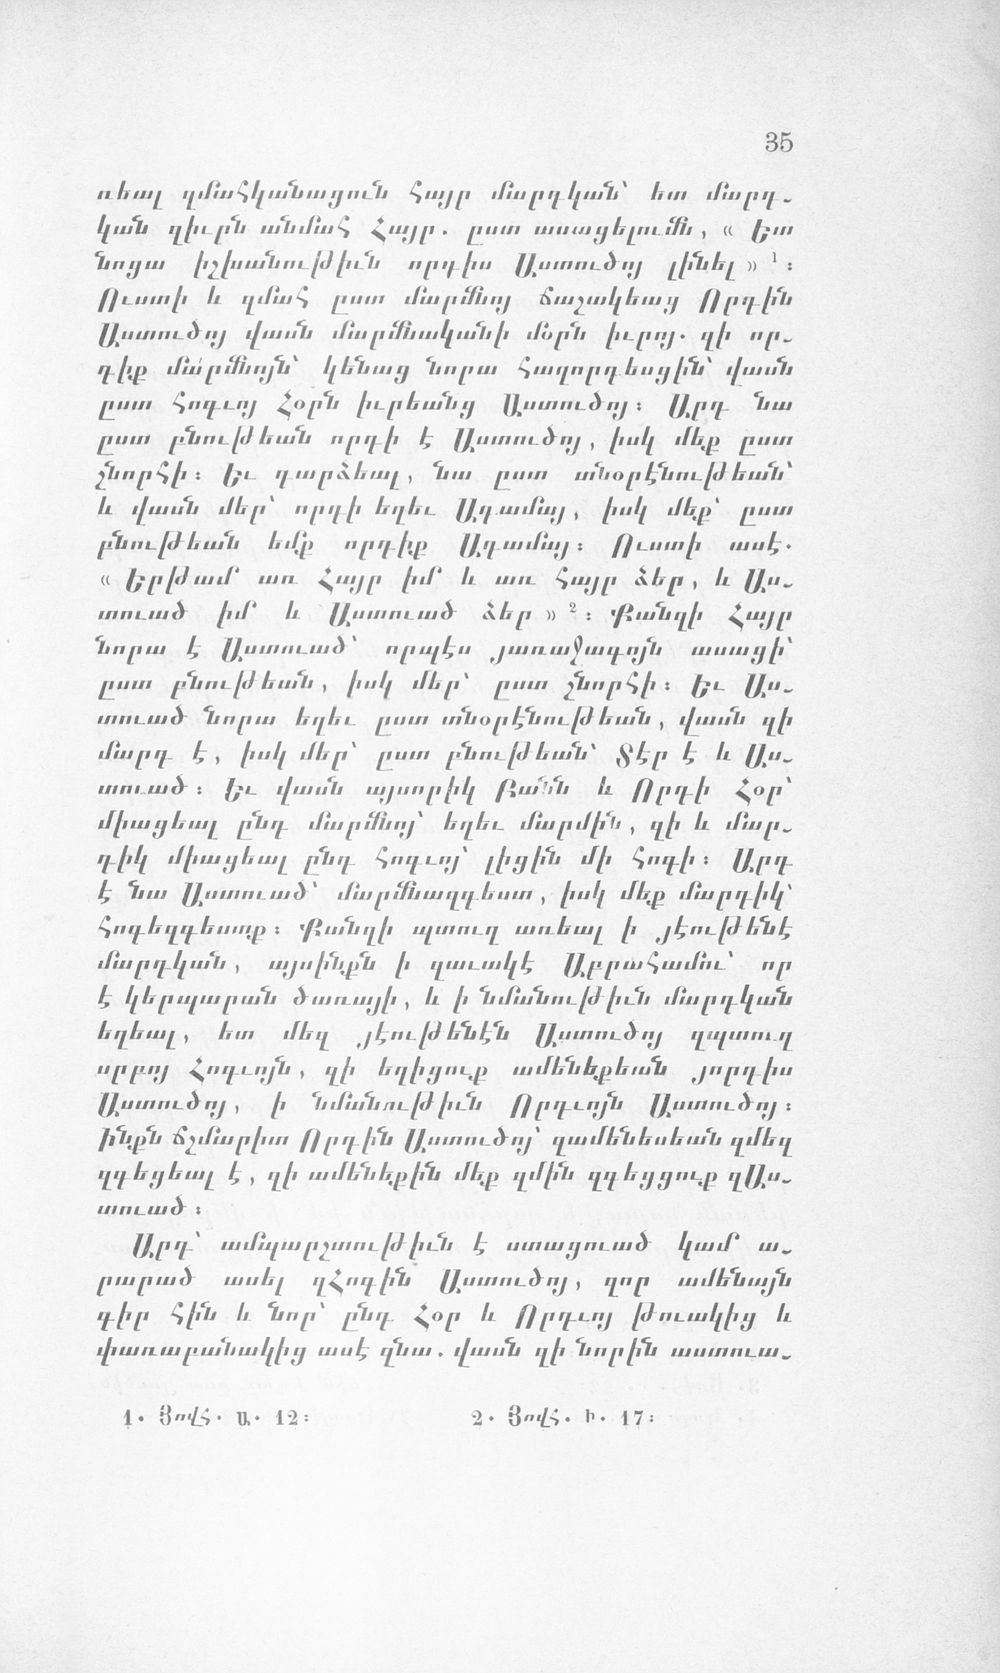 35
ռեալ զմահկանացուն Հայր մարդկան՝ ետ մարդ-
կան զիւրն անմահ Հայր. ըստ ասացելումն, « Ետ
նոցա իշխանութիւն որդիս Աստուծոյ լինել » 1 :
Ուստի և զմահ ըստ մարմնոյ ճաշակեաց Որդին
Աստուծոյ վասն մարմնականի մօրն իւրոյ. զի որ-
դիք մարմնոյն՝ կենաց նորա հաղորդեսցին՝ վասն
ըստ հոգւոյ Հօրն իւրեանց Աստուծոյ : Արդ նա
ըստ բնութեան որդի է Աստուծոյ, իսկ մեք ըստ
շնորհի : Եւ դարձեալ, նա ըստ տնօրէնութեան՝
և վասն մեր՝ որդի եղեւ Ադամայ, իսկ մեք՝ ըստ
բնութեան եմք որդիք Ադամայ : Ուստի ասէ.
« Երթամ առ Հայր իմ և առ Հայր ձեր, և Աս-
տուած իմ և Աստուած ձեր » 2 : Քանզի Հայր
նորա է Աստուած՝ որպէս յառաջագոյն ասացի՝
ըստ բնութեան, իսկ մեր՝ ըստ շնորհի : Եւ Աս-
տուած նորա եղեւ ըստ տնօրէնութեան, վասն զի
մարդ է, իսկ մեր՝ ըստ բնութեան՝ Տէր է և Աս-
տուած : Եւ վասն այսորիկ Բանն և Որդի Հօր՝
միացեալ ընդ մարմնոյ՝ եղեւ մարմին, զի և մար-
դիկ միացեալ ընդ հոգւոյ՝ լիցին մի հոգի : Արդ
է նա Աստուած՝ մարմնազգեստ, իսկ մեք մարդիկ՝
հոգեզգեստք : Քանզի պտուղ առեալ ի յէութենէ
մարդկան, այսինքն ի զաւակէ Աբրահամու՝ որ
է կերպարան ծառայի, և ի նմանութիւն մարդկան
եղեալ, ետ մեզ յէութենէն Աստուծոյ զպտուղ
սրբոյ Հոգւոյն, զի եղիցուք ամենեքեան յորդիս
Աստուծոյ, ի նմանութիւն Որդւոյն Աստուծոյ :
Ինքն ճշմարիտ Որդին Աստուծոյ՝ զամենեսեան զմեզ
զգեցեալ է, զի ամենեքին մեք զմին զգեցցուք զԱս-
տուած :
Արդ՝ ամպարշտութիւն է ստացուած կամ ա-
րարած ասել զՀոգին Աստուծոյ, զոր ամենայն
գիր հին և նոր՝ ընդ Հօր և Որդւոյ թուակից և
փառաբանակից ասէ զնա. վասն զի նորին աստուա-
1. Յովհ. Ա. 12 :
2. Յովհ. Ի. 17 :